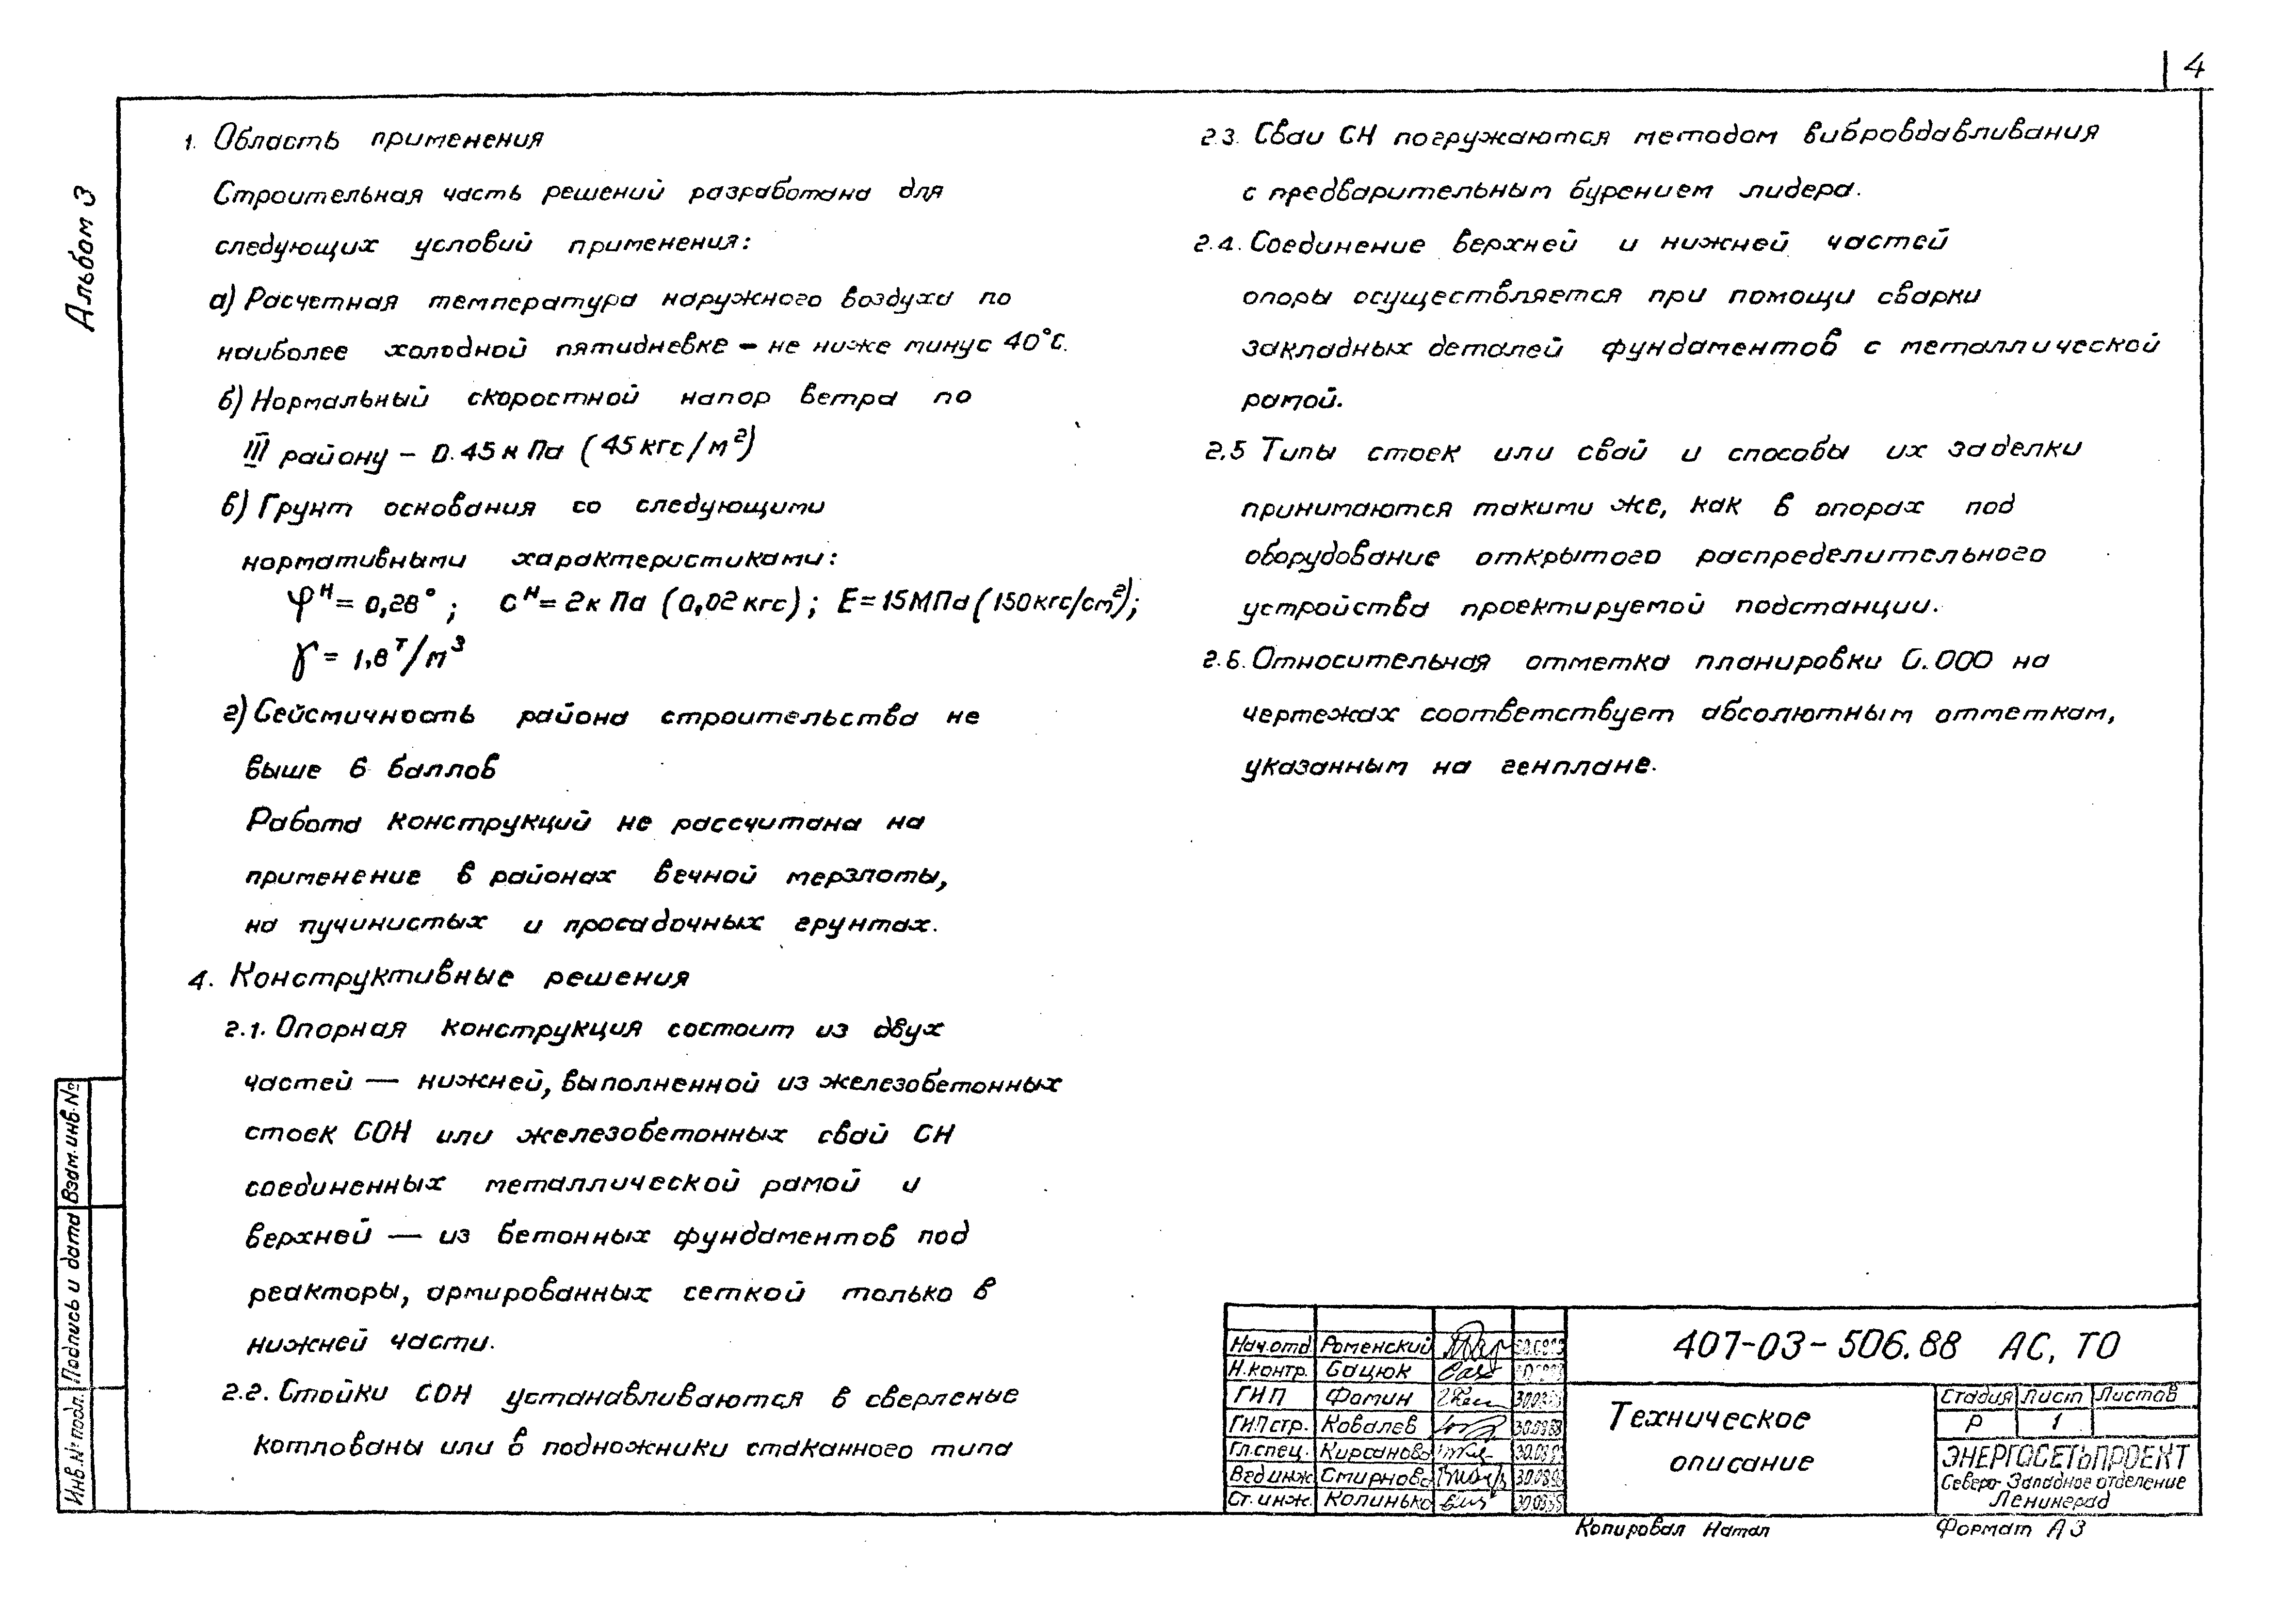 4
Альбом 3
1. Область применения
Строительная часть решений разработана для
следующих условий применения:
а) Расчетная температура наружного воздуха по
наиболее холодной пятидневке – не ниже минус 40°С.
б) Нормальный скоростной напор ветра по
III району – 0.45 к Па (45 кгс/м²)
в) Грунт основания со следующими
нормативными характеристиками:
φᴴ = 0,28°; сᴴ = 2к Па (0,02 кгс); Е = 15 МПа (150 кгс/см²);
γ = 1,8 т/м³
г) Сейсмичность района строительства не
выше 6 баллов
Работа конструкций не рассчитана на
применение в районах вечной мерзлоты,
на пучинистых и просадочных грунтах.
4. Конструктивные решения
2.1. Опорная конструкция состоит из двух
частей — нижней, выполненной из железобетонных
стоек СОН или железобетонных свай СН
соединенных металлической рамой и
верхней — из бетонных фундаментов под
реакторы, армированных сеткой только в
нижней части.
2.2. Стойки СОН устанавливаются в сверленые
котлованы или в подножники стаканного типа
2.3. Сваи СН погружаются методом вибровдавливания
с предварительным бурением лидера.
2.4. Соединение верхней и нижней частей
опоры осуществляется при помощи сварки
закладных деталей фундаментов с металлической
рамой.
2.5 Типы стоек или свай и способы их заделки
принимаются такими же, как в опорах под
оборудование открытого распределительного
устройства проектируемой подстанции.
2.6. Относительная отметка планировки 0.000 на
чертежах соответствует абсолютным отметкам,
указанным на генплане.
Взам. инв. №
Подпись и дата
Инв. № подл.
Нач.отд Роменский
Н.контр. Бацюк
ГИП Фомин
ГИП стр. Ковалев 30.09.88
Гл.спец. Кирсанова
Вед инж Смирнова
Ст. инж. Колинько
407-03-506.88 АС, ТО
Техническое
описание
Стадия Лист Листов
Р 1
ЭНЕРГОСЕТЬПРОЕКТ
Северо-Западное отделение
Ленинград
Копировал Натал
Формат А3